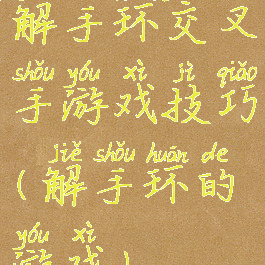 解手环交叉
shǒu yóu xì jì qiǎo
手游戏技巧
jiě shǒu huán de
(解手环的
yóu xì
游戏)